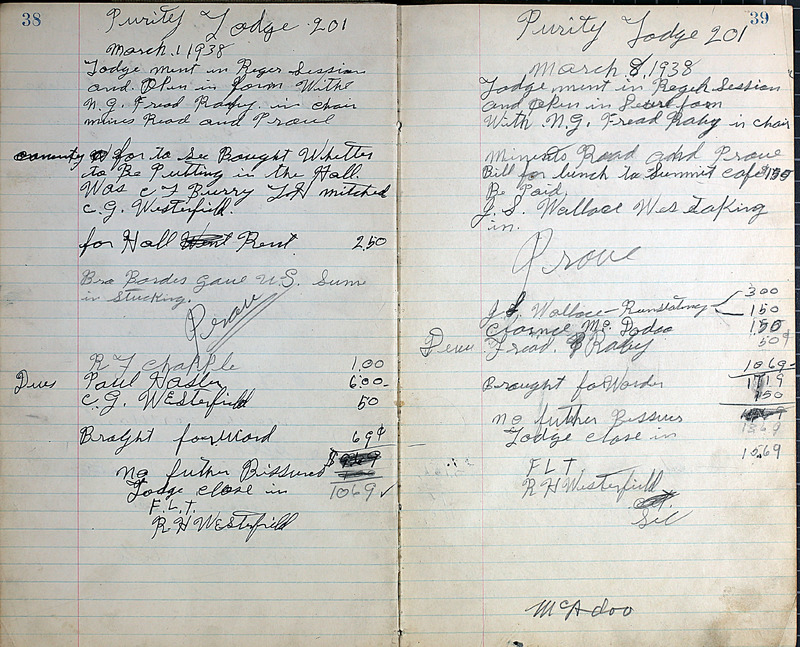 38
Purity Lodge 201
March 1 1938
Lodge ment in Reger Session
and Open in form Withe
N.G. Fread Raby in chair
mines Read and Proue
for to See Bought Whetter
to Be Putting in the Hall.
Was C J Burry J H mitched
C. G. Westerfield.
for Hall Rent 2.50
Bro Bordes Gave U.S. Sume
in Stucking.
Proue
R F Chapple 1.00
Dues Paul Hasler 6.00
C. G. WEsterfield 50
Broght forword 69¢
No futher Bissured
Lodge close in 1069
F. L. T.
R H WEsterfield
39
Purity Lodge 201
March 8, 1938
Lodge ment in Reger Session
and Open in form
With N.G. Fread Raby in chair
Minents Read and Prove
Bill for lunch to Summit cafe
Be Paid.
J. S. Wallace Wes taking
in.
Prove
300
J. S. Wallace 150
Clarnce Mc Dodoo 150
Dews Fread Raby 50¢
1069
Brought forworder 1719
150
No futher Bissues
1569
Lodge close in
1569
F L T
R H Westerfield
Sec
McAdoo